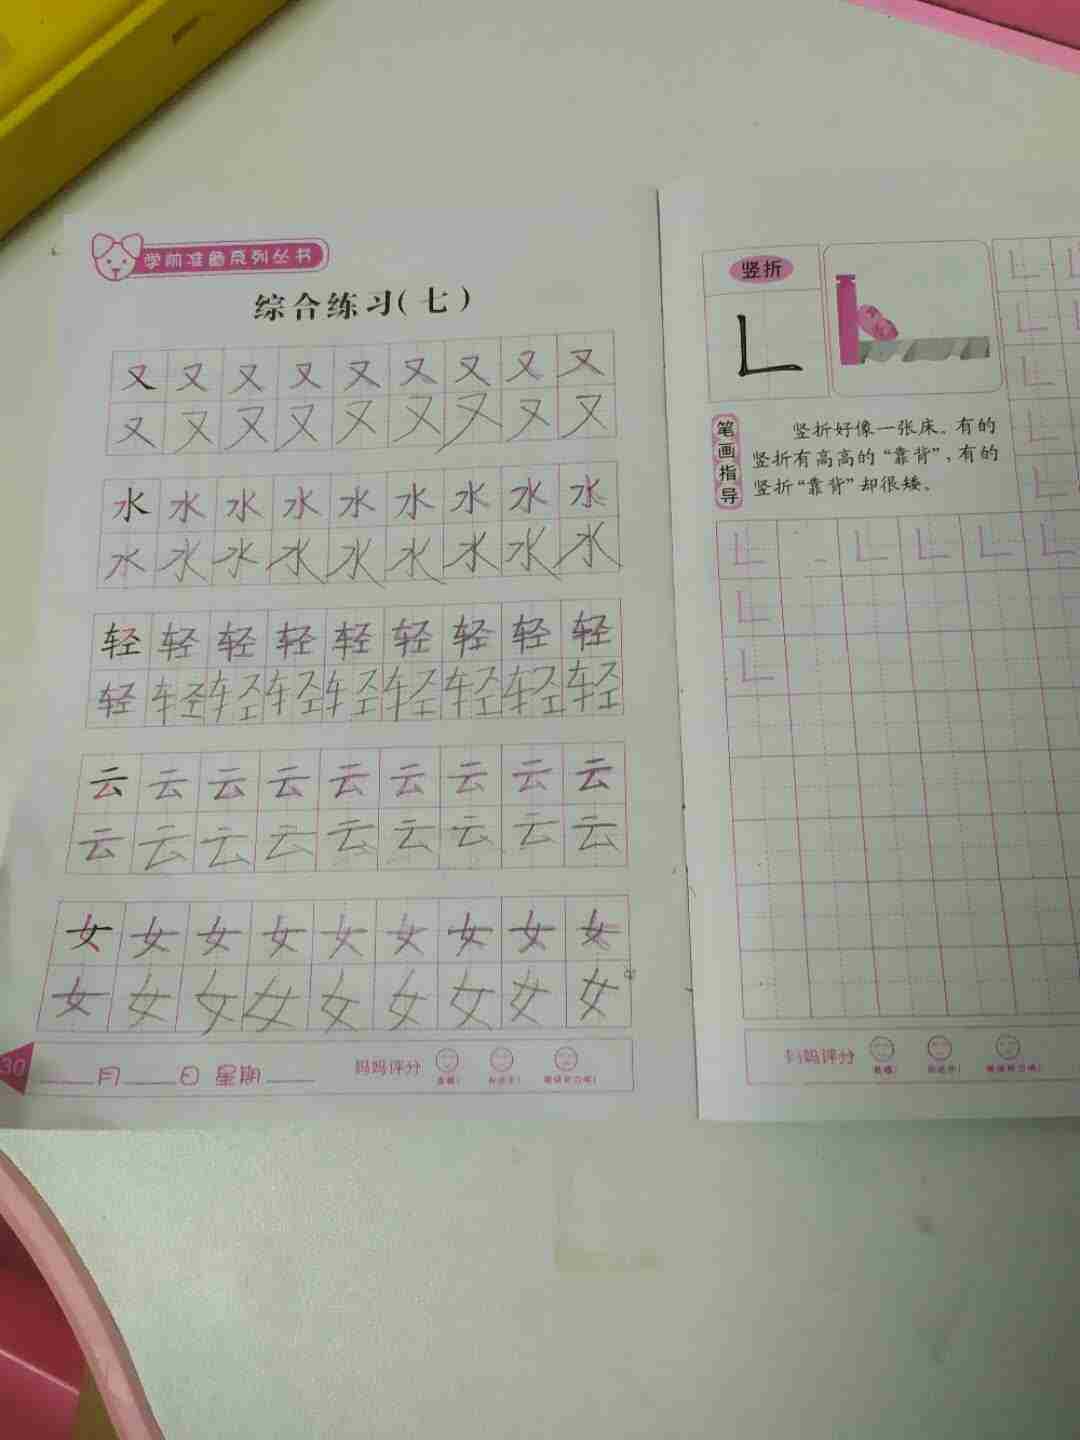 学前准备系列丛书
综合练习(七)
又 又 又 又 又 又 又 又 又
又 又 又 又 又 又 又 又 又
水 水 水 水 水 水 水 水 水
水 水 水 水 水 水 水 水 水
轻 轻 轻 轻 轻 轻 轻 轻 轻
轻 轻 轻 轻 轻 轻 轻 轻 轻
云 云 云 云 云 云 云 云 云
云 云 云 云 云 云 云 云 云
女 女 女 女 女 女 女 女 女
女 女 女 女 女 女 女 女 女
30
月 日 星期 妈妈评分
竖折
笔画指导
竖折好像一张床。有的
竖折有高高的“靠背”，有的
竖折“靠背”却很矮。
妈妈评分